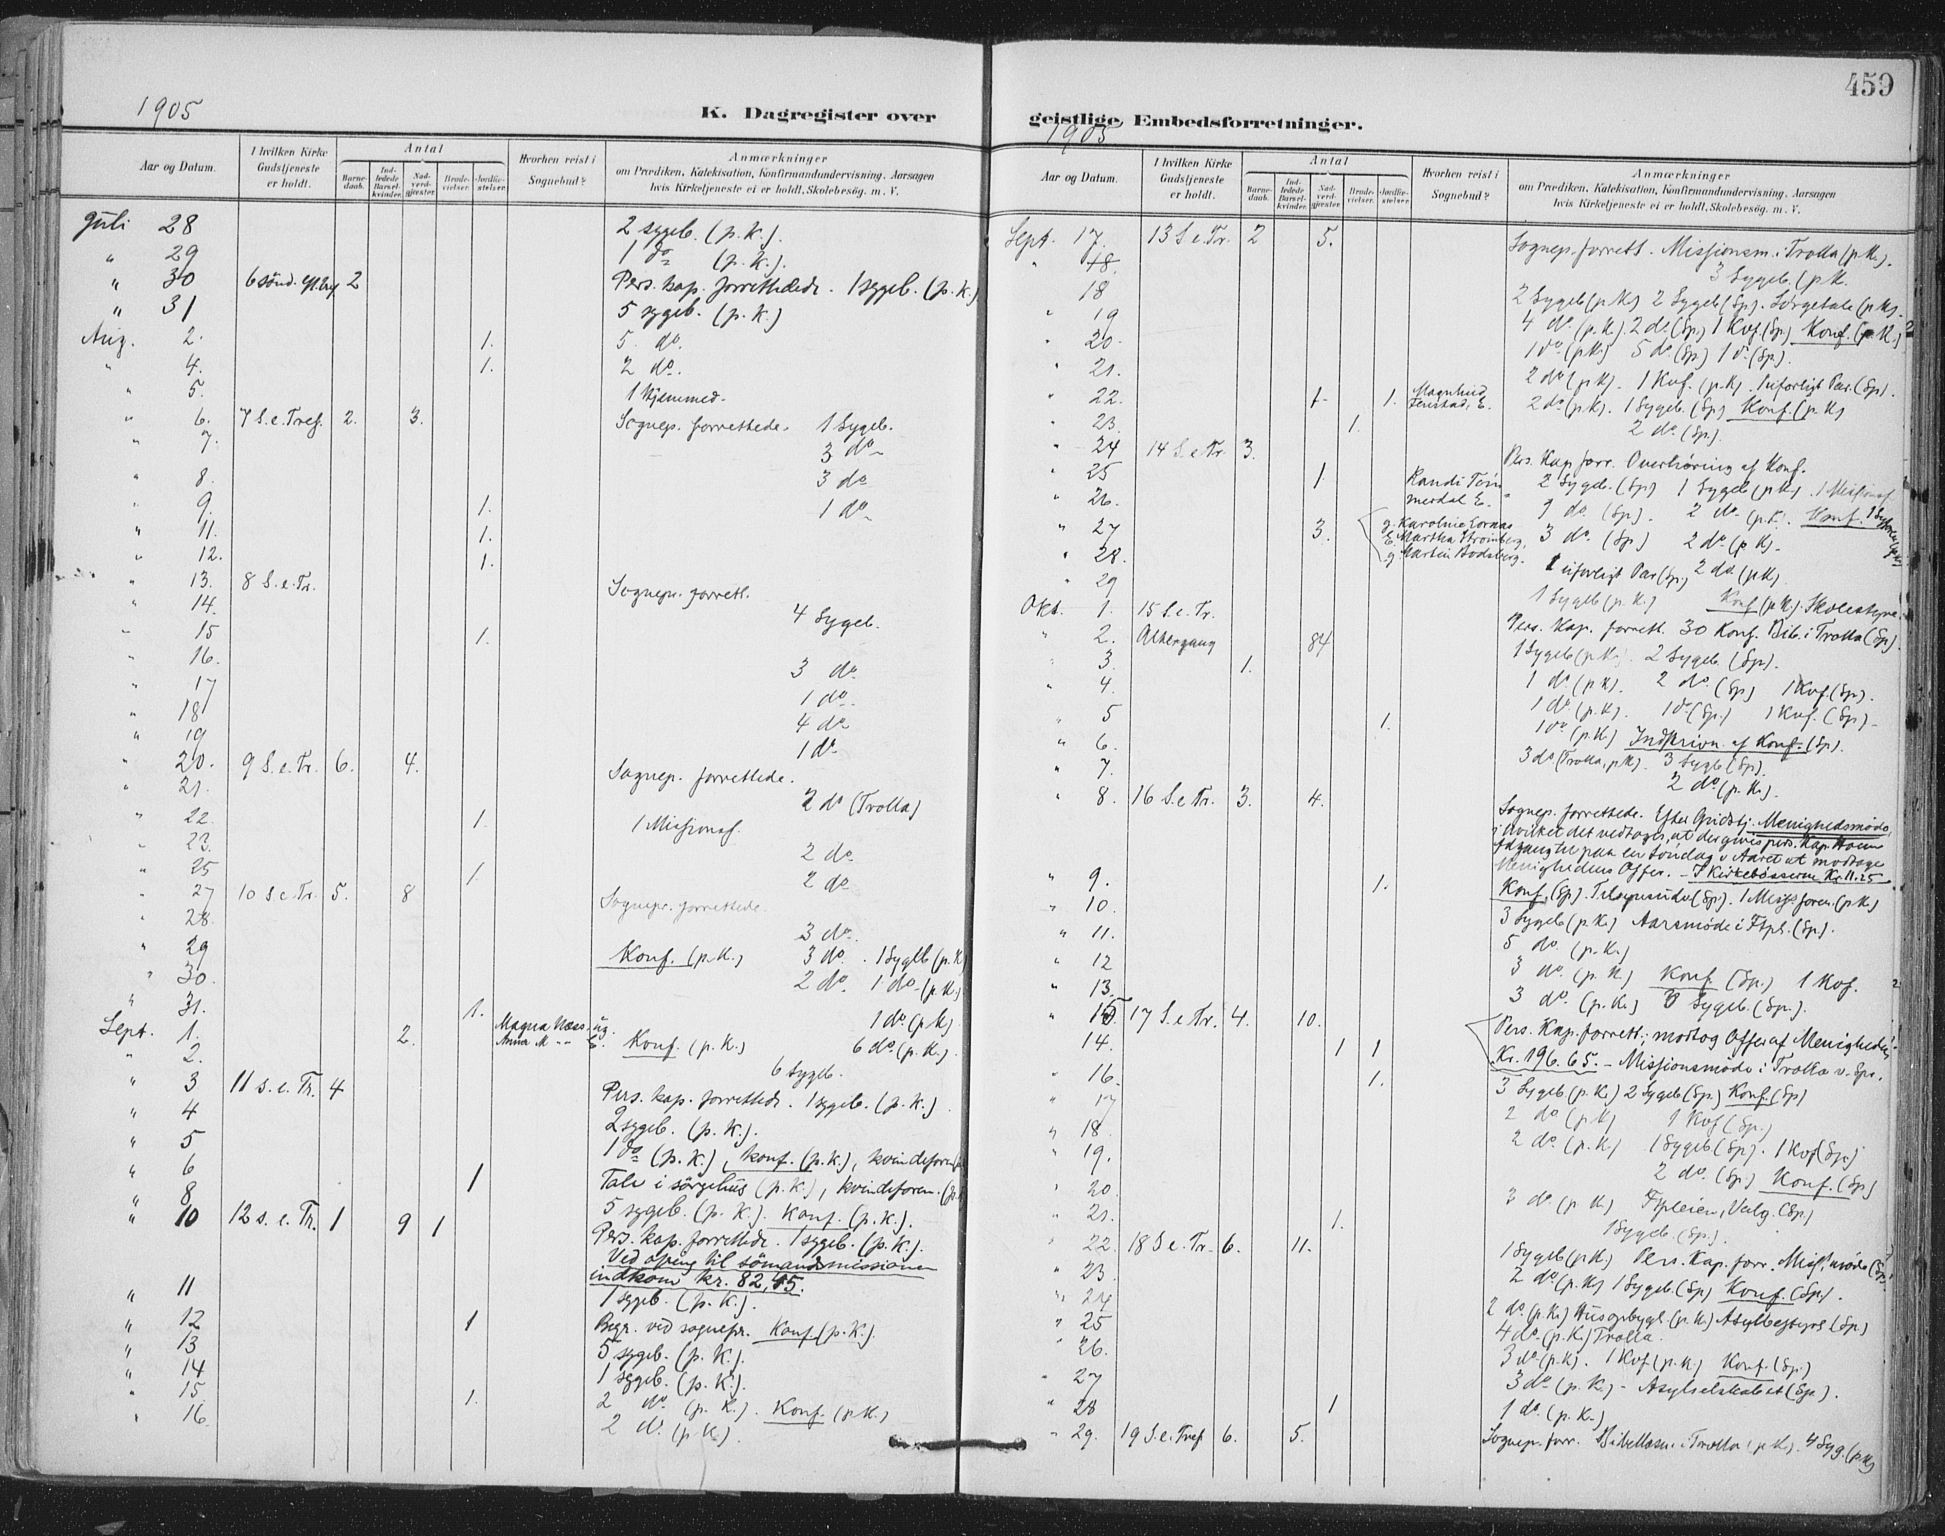 1905
K. Dagregister over
Aar og Datum.
I hvilken Kirke Gudstjeneste er holdt.
Antal
Barnedaab.
Indledede Barselkvinder.
Nadverdgjester.
Brudevielser.
Jordfæstelser.
Hvorhen reist i Sognebud?
Anmærkninger
om Prædiken, Katekisation, Konfirmandundervisning, Aarsagen
hvis Kirketjeneste ei er holdt, Skolebesøg. m. V.
Juli 28 2 sygeb. (p.k.).
" 29 1 do (p.k.).
" 30 6 sönd. eft. 2 Pers. kap. forrettede. 1 sygeb. (p.k.)
" 31 5 sygeb. (p.k.)
Aug. 2. 1. 5. do.
" 4. 1. 2 do.
" 5. 1 Hjemmed.
" 6. 7 S.e.Tref. 2. 3. Sognep. forrettede. 1 Sygeb.
" 7. 3 do
" 8. 3 do
" 9. 1. 1 do
" 11. 1.
" 12. 1.
" 13. 8 S.e.Tr. Sognepr. forrett.
" 14. 4 Sygeb.
" 15 1.
" 16. 3 do.
" 17 1 do.
" 18 4 do
" 19 1 do
" 20. 9 S.e.Tr. 6. 4. Sognep. forrettede.
" 21. 2 do (Trolla)
" 22. 1. 1 Missionsf.
" 23. 2 do.
" 25 1. 2 do
" 27 10 S.e.Tr. 5. 8 Sognepr. forrettede.
" 28. 3 do.
" 29 Konf. (p.k.) 3 do. 1 Sygeb (p.k)
" 30. 2 do. 1 do (p.k.)
" 31. 1. 1 do. (p.k)
Sept. 1. 2. Magna Næss, ug. Anna M " " E. Konf. (p.k.) 6 do. (p.k.).
" 2. 6 Sygeb.
" 3 11 s.e.Tr. 4 Pers. kap. forrettede. 1 sygeb. (p.k.)
" 4 2 sygeb. (p.k.).
" 5 1 do (p.k.), konf. (p.k.), kvindeforen.
" 6 1 Tale i sörgehus (p.k.), kvindeforen.
" 8 5 sygeb. (p.k.). Konf. (p.k.).
" 10 12 s.e.Tr. 1 9 1 Pers. kap. forrettede. 1 sygeb. (p.k.).
Ved ofring til sömandsmissionen
indkom kr. 82,45.
" 11 1 sygeb. (p.k.).
" 12 1 Begr. ved sognepr. Konf. (p.k.).
" 13 5 sygeb. (p.k.).
" 14 1 sygeb. (p.k.).
" 15 1. 2 do. (p.k.). Konf. (p.k.)
" 16. 2 do. (p.k.).
459
geistlige Embedsforretninger.
1905
Aar og Datum.
I hvilken Kirke Gudstjeneste er holdt.
Antal
Barnedaab.
Indledede Barselkvinder.
Nadverdgjester.
Brudevielser.
Jordfæstelser.
Hvorhen reist i Sognebud?
Anmærkninger
om Prædiken, Katekisation, Konfirmandundervisning, Aarsagen
hvis Kirketjeneste ei er holdt, Skolebesøg. m. V.
Sept. 17. 13 S.e.Tr. 2 5. Sognep. forrett. Missionsm. i Trolla (p.k.).
" 18. 3 Sygeb (p.k.
18 2 Sygeb (p.k) 2 Sygeb (Sp). Sørgetale (p.k).
" 19 4 do. (p.k.) 2 do (Sp) 1 Kvf. (Sp) Konf. (p.k.)
" 20. 1 do. (p.k.) 5 do (Sp) 1 do. (Sp).
" 21. 2 do (p.k). 1 Kvf. (p.k). (Sp).
" 22. 1. 1. Magnhild Fenstad, E. 2 do (p.k). 1 Sygeb. (Sp) Konf. (p.k)
" 23. 1. 2 do. (Sp).
" 24 14 S.e.Tr. 3. Pers. Kap. forr. Overhøring af Konf.
" 25 1 Randi Tømmerdal E. 2 Sygeb. (Sp) 1 Sygeb (p.k). 1 Missionsf.
" 26. do. (Sp). 2 do. (p.k). Konf.
" 27 3. g. Karoline E. Martha Strømberg, g. Martin 3 do. (Sp) 2 do. (p.k).
" 28. (Sp) 2 do. (p.k).
" 29 1 Sygeb (p.k.) Konf. (p.k). Skolestyre.
Okt. 1. 15 S.e.Tr. Pers. Kap. forrett. 30 Konf. Bib. i Trolla (Sp).
" 2. Altergang 84 1 Sygeb (p.k.). 2 Sygeb. (Sp).
" 3. 1. 1 do (p.k). 2 do. (Sp) 1 Kvf. (Sp).
" 4. 1 do. (p.k). 1 do (Sp.) 1 Kvf. (Sp).
" 5 1. 1 do. (p.k) Indskrivn. af Konf. (Sp).
" 6. 3 do (Trolla, p.k). 3 Sygeb (Sp).
" 7. 2 do. (p.k.).
" 8. 16 S.e.Tr. 3. 4. Sognep. forrettede. Efter Gudstj. Menighedsmøde,
i hvilket det vedtoges, at der gives pers. Kap.
Adgang til paa en Söndag i Aaret at modtage
Menighedens Offer. - I Kirkebøsserne Kr. 11.25
" 9. 1. Konf. (Sp). Tilsynsmøde (Sp). 1 Miss. foren. (p.k)
" 10. 3 Sygeb (p.k.) Aarsmøde i (Sp.).
" 11. 5 do. (p.k.)
" 12 3 do. (p.k) Konf. (Sp.) 1 Kvf.
" 13. 3 do. (p.k.) Sygeb. (Sp.).
" 15. 17 S.e.Tr. 4. 10. Pers. Kap. forrett.; modtog Offer af Menigheden,
" 14. 1 1 Kr. 196.65. - Missionsmøde i Trolla v. Spr.
" 16. 1. 3 Sygeb. (p.k.) 2 Sygeb (Sp.) Konf. (Sp)
" 17 2 do (p.k) 1 Kvf (Sp.)
" 18. 2 do. (p.k) 1 Sygeb (Sp). 1 Kvf (Sp)
" 19. 2 do. (Sp) Konf. (Sp)
" 20. 3 do (p.k.) Valg. (Sp)
" 21. 1. 1 Sygeb. (Sp.).
" 22. 18 S.e.Tr. 6. 11. 1 Sygeb (p.k.) Pers. Kap. forr. Miss. møde (Sp).
" 23 2 do. (p.k) 1 Sygeb. (Sp) Konf. (Sp).
" 24 2 do. (p.k.) (p.k.) Asylbestyrels (Sp)
" 25 4 do. (p.k.) Trolla.
" 26. 3 do. (p.k). 1 Kvf (p.k.) Konf. (Sp.)
" 27 3 do (p.k.) - Asylselskabet (Sp).
" 28 1 1 do. (p.k.)
" 29. 19 S.e.Tref 6. 5. Sognep. forr. Bibellæsn. i Trolla (p.k). 4 Syg. (p.k)